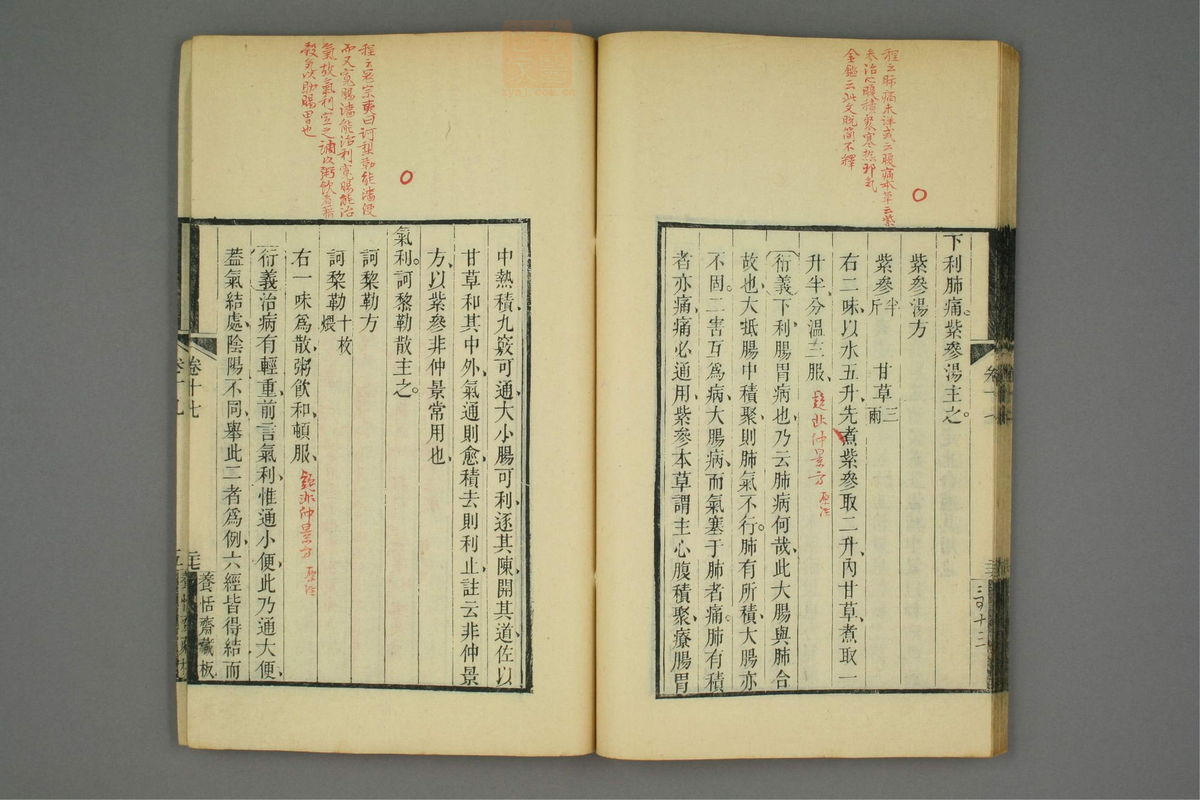 程云肺痛未詳或云腹痛本草云紫
參治心腹積聚寒熱邪氣
金鑑云此文脫簡不釋
下利肺痛。紫參湯主之。
紫參湯方
紫參半斤 甘草三兩
右二味、以水五升、先煮紫參、取二升、內甘草、煮取一
升半、分溫三服、 疑非仲景方 原注
衍義下利腸胃病也、乃云肺病何哉、此大腸與肺合
故也、大抵腸中積聚則肺氣不行。肺有所積、大腸亦
不固。二害互爲病、大腸病、而氣塞于肺者痛。肺有積
者亦痛、痛必通用、紫參本草謂主心腹積聚、療腸胃
三百十三
中熱積、九竅可通、大小腸可利、逐其陳、開其道、佐以
甘草和其中外、氣通則愈、積去則利止、註云非仲景
方、以紫參非仲景常用也、
氣利。訶黎勒散主之。
訶黎勒方
訶黎勒十枚煨
右一味爲散、粥飲和、頓服、 疑非仲景方 原注
衍義治病有輕重、前言氣利、惟通小便、此乃通大便、
蓋氣結處、陰陽不同、舉此二者爲例、六經皆得結而
程云寇宗奭曰訶梨勒能濇便
而又寬腸濇能治利寬腸能治
氣故氣利宜之調以粥飲者藉
穀氣以助腸胃也
卷十七
養恬齋藏板